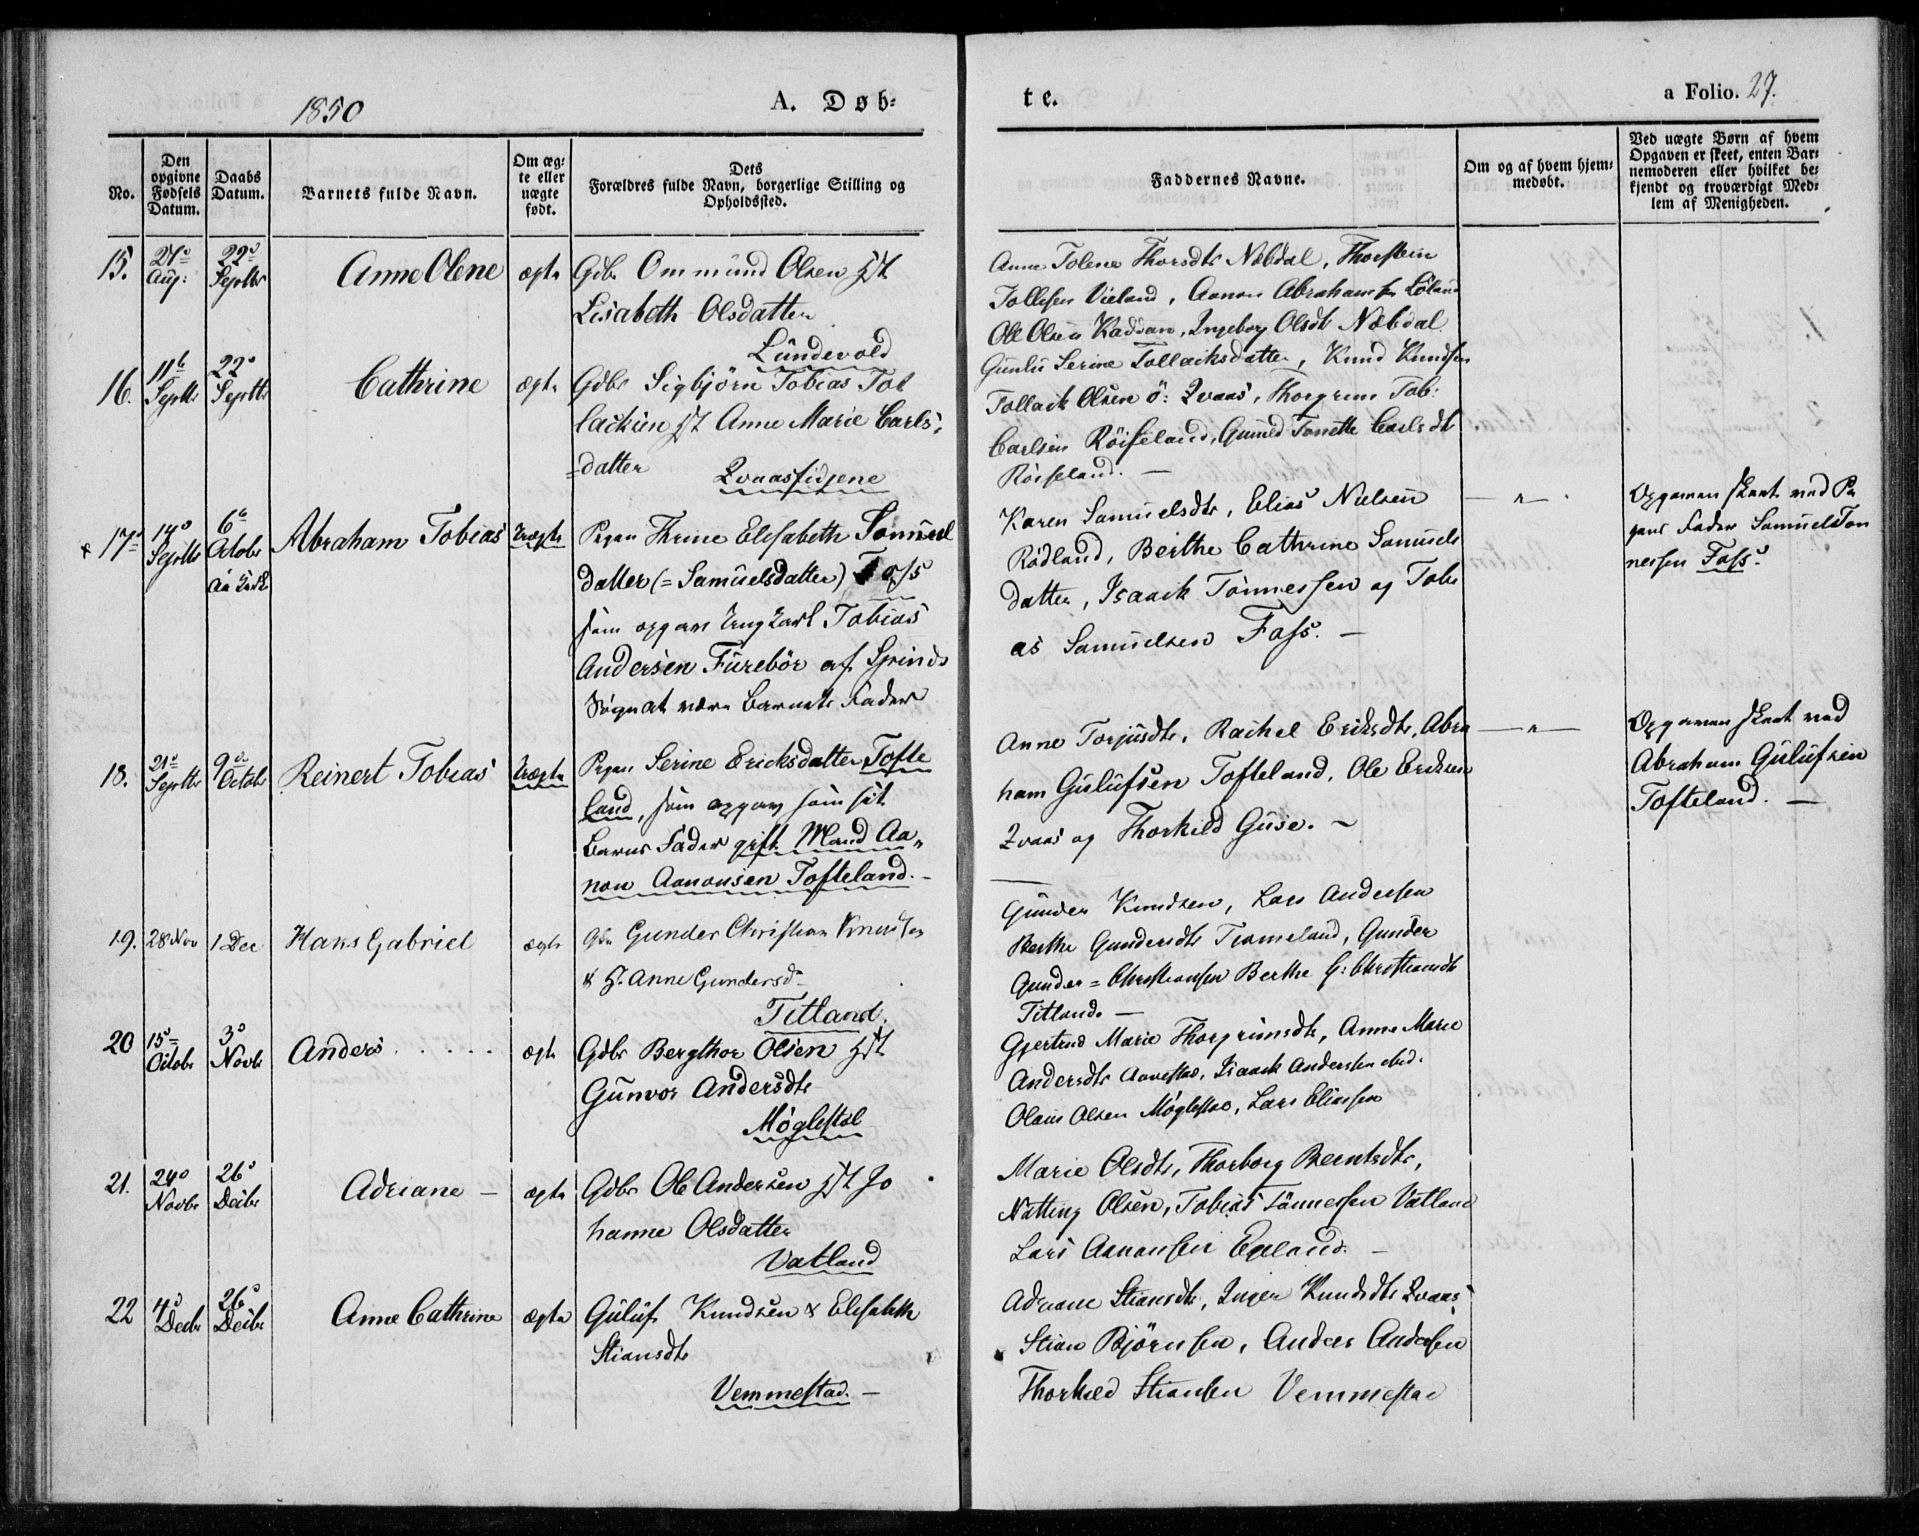 1850
A. Døb-
te.
a Folio. 27.
No.
Den opgivne Fødsels Datum.
Daabs Datum.
Barnets fulde Navn.
Om ægte eller uægte født.
Dets Forældres fulde Navn, borgerlige Stilling og Opholdssted.
Faddernes Navne.
Om og af hvem hjemmedøbt.
Ved uægte Børn af hvem Opgaven er skeet, enten Barnemoderen eller hvilket bekjendt og troværdigt Medlem af Menigheden.
15.
Aug:
22de Septbr
Anne Olene
ægte
Gdbr Ommund Olsen
Lisabeth Olsdatter
Lundevold
Anne Tolene Thorsdtr Nebdal, Thorstein
Tollefsen Vieland, Aanon Abrahamsen Löland
Ole Olsen, Ingeborg Olsdtr Nebdal
16.
11te Septbr
22de Septbr
Cathrine
ægte
Gdbr Sigbjörn Tobias Tol
lacksen Anne Marie Carls-
datter
Qvaasfidjene
Gunlu Serine Tollacksdatter, Knud Knudsen
Tollack Olsen ö: Qvaas, Thorgrim Tob:
Carlsen Röiseland, Gunild Tonette Carlsdtr
Röiseland. —
17
Septbr
6te Octobr
Abraham Tobias
Uægte
Pigen Thrine Elisabeth Samuel
datter (= Samuelsdatter) Foss
som opgav Ungkarl Tobias
Andersen Furebör af Spinds
Sogn at være Barnets Fader
Karen Samuelsdtr, Elias Nielsen
Rödland, Berthe Cathrine Samuels
datter, Isaack Tönnessen og Tobi
as Samuelsen Foss. —
— " —
Opgaven skeet ved Pi
gens Fader Samuel Tön
nessen Foss.
18.
21de Septbr
9de Octobr
Reinert Tobias
Uægte
Pigen Serine Ericksdatter Tofte
land, som opgav som sit
Barns Fader gift Mand Aa-
non Aanonsen Tofteland. —
Anne Torjusdtr, Rachel Eriksdtr, Abra
ham Gulufsen Tofteland, Ole Eriksen
Qvaas og Thorkild Guse. —
— " —
Opgaven skeet ved
Abraham Gulufsen
Tofteland. —
19.
28 Nov
1 Dec
Hans Gabriel
ægte
Gbr Gunder Christian Knudsen
& H. Anne Gundersd
Titland.
Gunder Knudsen, Lars Andersen
Berthe Gundersdtr Trameland, Gunder
Gunder = Christiansen Berthe G: Christiansdtr
Titland. —
20
15de Octobr
3de Novbr
Anders . . . . .
ægte
Gdbr Bergthor Olsen
Gunvor Andersdtr
Möglestöl
Gjertrud Marie Thorgrimsdtr, Anne Marie
Andersdtr, Isaack Andersen ibid.
Olaus Olsen Möglestöl, Lars Eliassen
21.
24de Novbr
26de Decbr
Adriane —
ægte
Gdbr Ole Andersen Jo
hanne Olsdatter
Vatland
Marie Olsdtr, Thorborg Berntsdtr,
Olsen, Tobias Tönnessen Vatland
Lars Aanonsen Egeland. —
22
4de Decbr
26de Decbr
Anne Cathrine
ægte
Guluf Knudsen & Elisabeth
Stiansdtr
Vemmestad. —
Adriane Stiansdtr, Inger Knudsdtr Qvaas
Stian Bjørnsen, Anders Andersen
Thorkild Stiansen Vemmestad